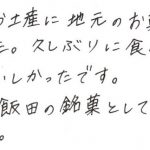 お土産に地元のお菓
た。久しぶりに食
いしかったです。
飯田の銘菓として
。